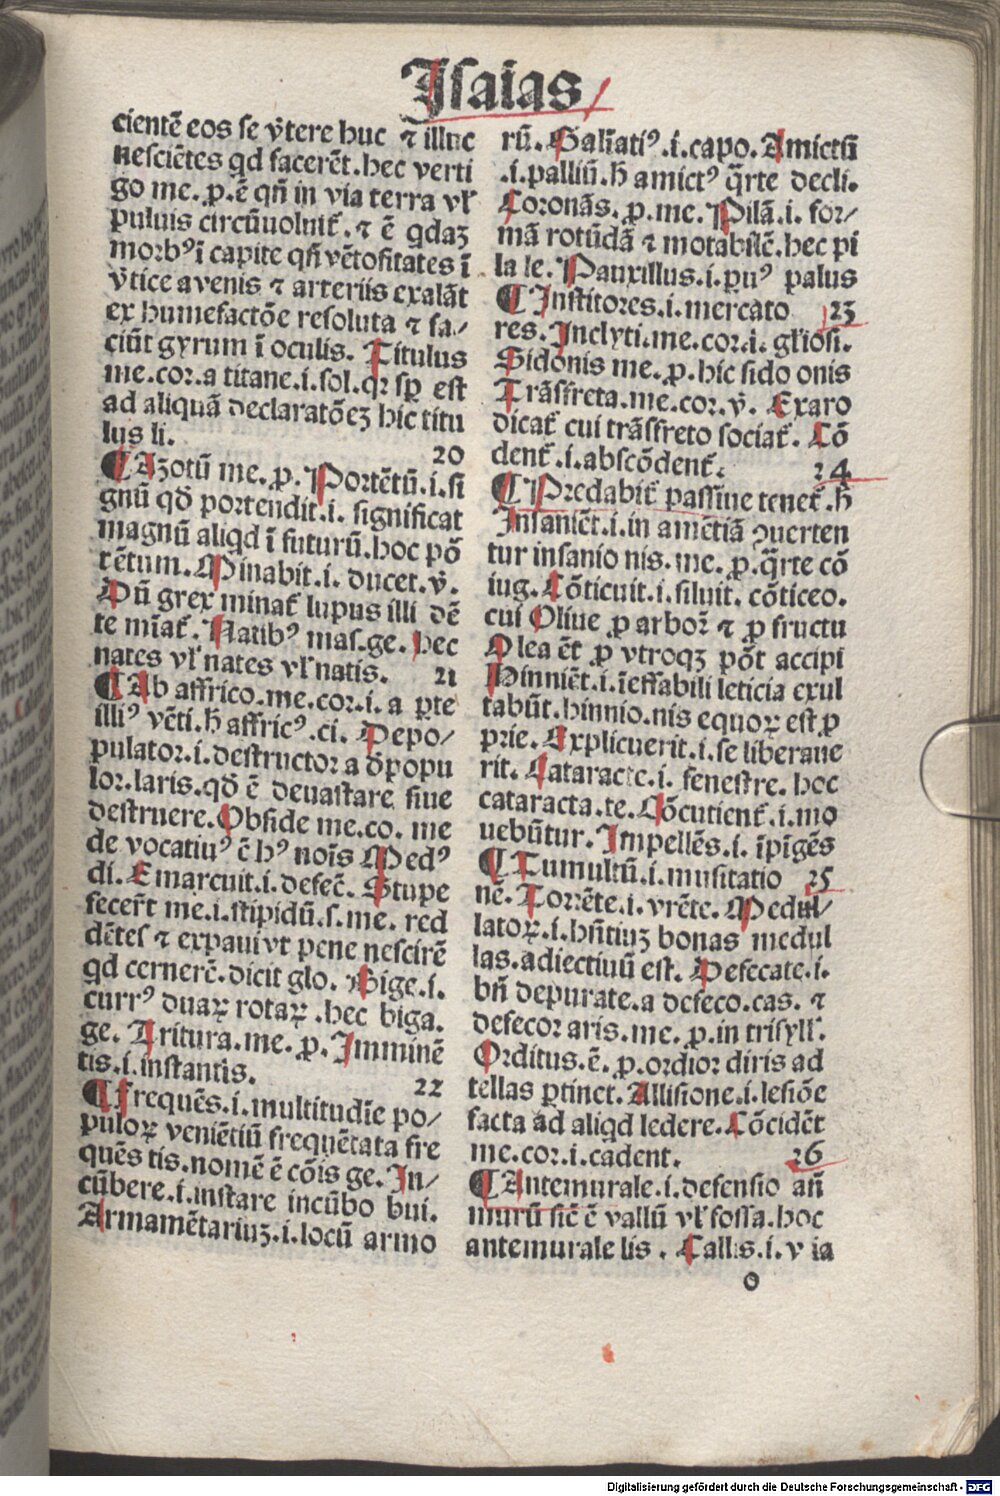 Isaias
cientē eos se v̄tere huc ⁊ illuc
nesciētes qd facerēt. hec verti
go me. ꝓ. ē qn̄ in via terra vl'
puluis circūuoluit᷑. ⁊ ē qdaꝫ
morbꝰ ī capite qn̄ vētositates ī
v̄tice a venis ⁊ arteriis exalāt
ex humefactōe resoluta ⁊ fa/
ciūt gyrum ī oculis. Titulus
me. cor. a titane .i. sol. qꝛ sꝑ est
ad aliquā declaratōeꝫ hic titu
lus li. 20
¶ Azotū me. ꝓ. Portētū .i. si
gnū qd̄ portendit .i. significat
magnū aliqd ī futurū. hoc pō
tētum. Minabit .i. ducet. v̄.
Dū grex minat᷑ lupus illi dē
te mīat᷑. Natibꝰ mas. ge. hec
nates vl' nates vl' natis. 21
¶ Ab affrico. me. cor .i. a ꝑte
illiꝰ vēti. h̄ affricꝰ. ci. Depo/
pulator .i. destructor a d̄popu
lor. laris. qd̄ ē deuastare siue
destruere. Obside me. co. me
de vocatiuꝰ ē hꝰ noīs Medꝰ
di. Emarcuit .i. defec̄. Stupe
fecer̄t me .i. stipidū. s. me. red
dētes ⁊ expaui vt pene nescirē
qd cernerē. dicit glo. Bige .i.
currꝰ duaꝝ rotaꝝ . hec biga.
ge. Tritura. me. ꝓ. Imminē
tis .i. instantis. 22
¶ Frequēs .i. multitudīe po/
puloꝝ veniētiū frequētata fre
quēs tis. nomē ē cōis ge. In/
cūbere .i. instare incūbo bui.
Armamētariuꝫ .i. locū armo
rū. Galeatiꝰ .i. capo. Amictū
.i. palliū. h̄ amictꝰ q̄rte decli.
Coronās. ꝓ. me. Pilā .i. for/
mā rotūdā ⁊ motabilē. hec pi
la le. Pauxillus .i. puꝰ palus
¶ Institores .i. mercato 23
res. Inclyti. me. cor .i. gl'iosi.
Sidonis me. ꝓ. hic sido onis
Trāsfreta. me. cor. v̄. Exaro
dicat᷑ cui trāsfreto sociat᷑. Cō
dent᷑ .i. abscōdent᷑. 24
¶ Predabit᷑ passiue tenet᷑. h̄
Insaniēt .i. in amētiā ꝯuerten
tur insanio nis. me. ꝓ. q̄rte cō
iug. Cōticuit .i. siluit. cōticeo.
cui Oliue ꝓ arboꝝ ⁊ ꝓ fructu
Olea ēt ꝓ vtroqꝫ pōt accipi
Hinniēt .i. īeffabili leticia exul
tabūt. hinnio. nis equoꝝ est ꝓ
prie. Explicuerit .i. se liberaue
rit. Cataracte .i. fenestre. hoc
cataracta. te. Cōcutient᷑ .i. mo
uebūtur. Impellēs .i. īpīgēs
¶ Tumultū .i. musitatio 25
nē. Torrēte .i. vrēte. Medul/
latoꝝ .i. hn̄tiuꝫ bonas medul
las. adiectiuū est. Defecate .i.
bn̄ depurate. a defeco. cas. ⁊
defecor aris. me. ꝓ. in trisyll'.
Orditus. ē. ꝓ. ordior diris ad
tellas ꝑtinet. Allisione .i. lesiōe
facta ad aliqd ledere. Cōcidēt
me. cor .i. cadent. 26
¶ Antemurale .i. defensio an̄
murū sic̄ ē vallū vl' fossa. hoc
antemurale lis . Callis .i. v ia
o
Digitalisierung gefördert durch die Deutsche Forschungsgemeinschaft - DFG